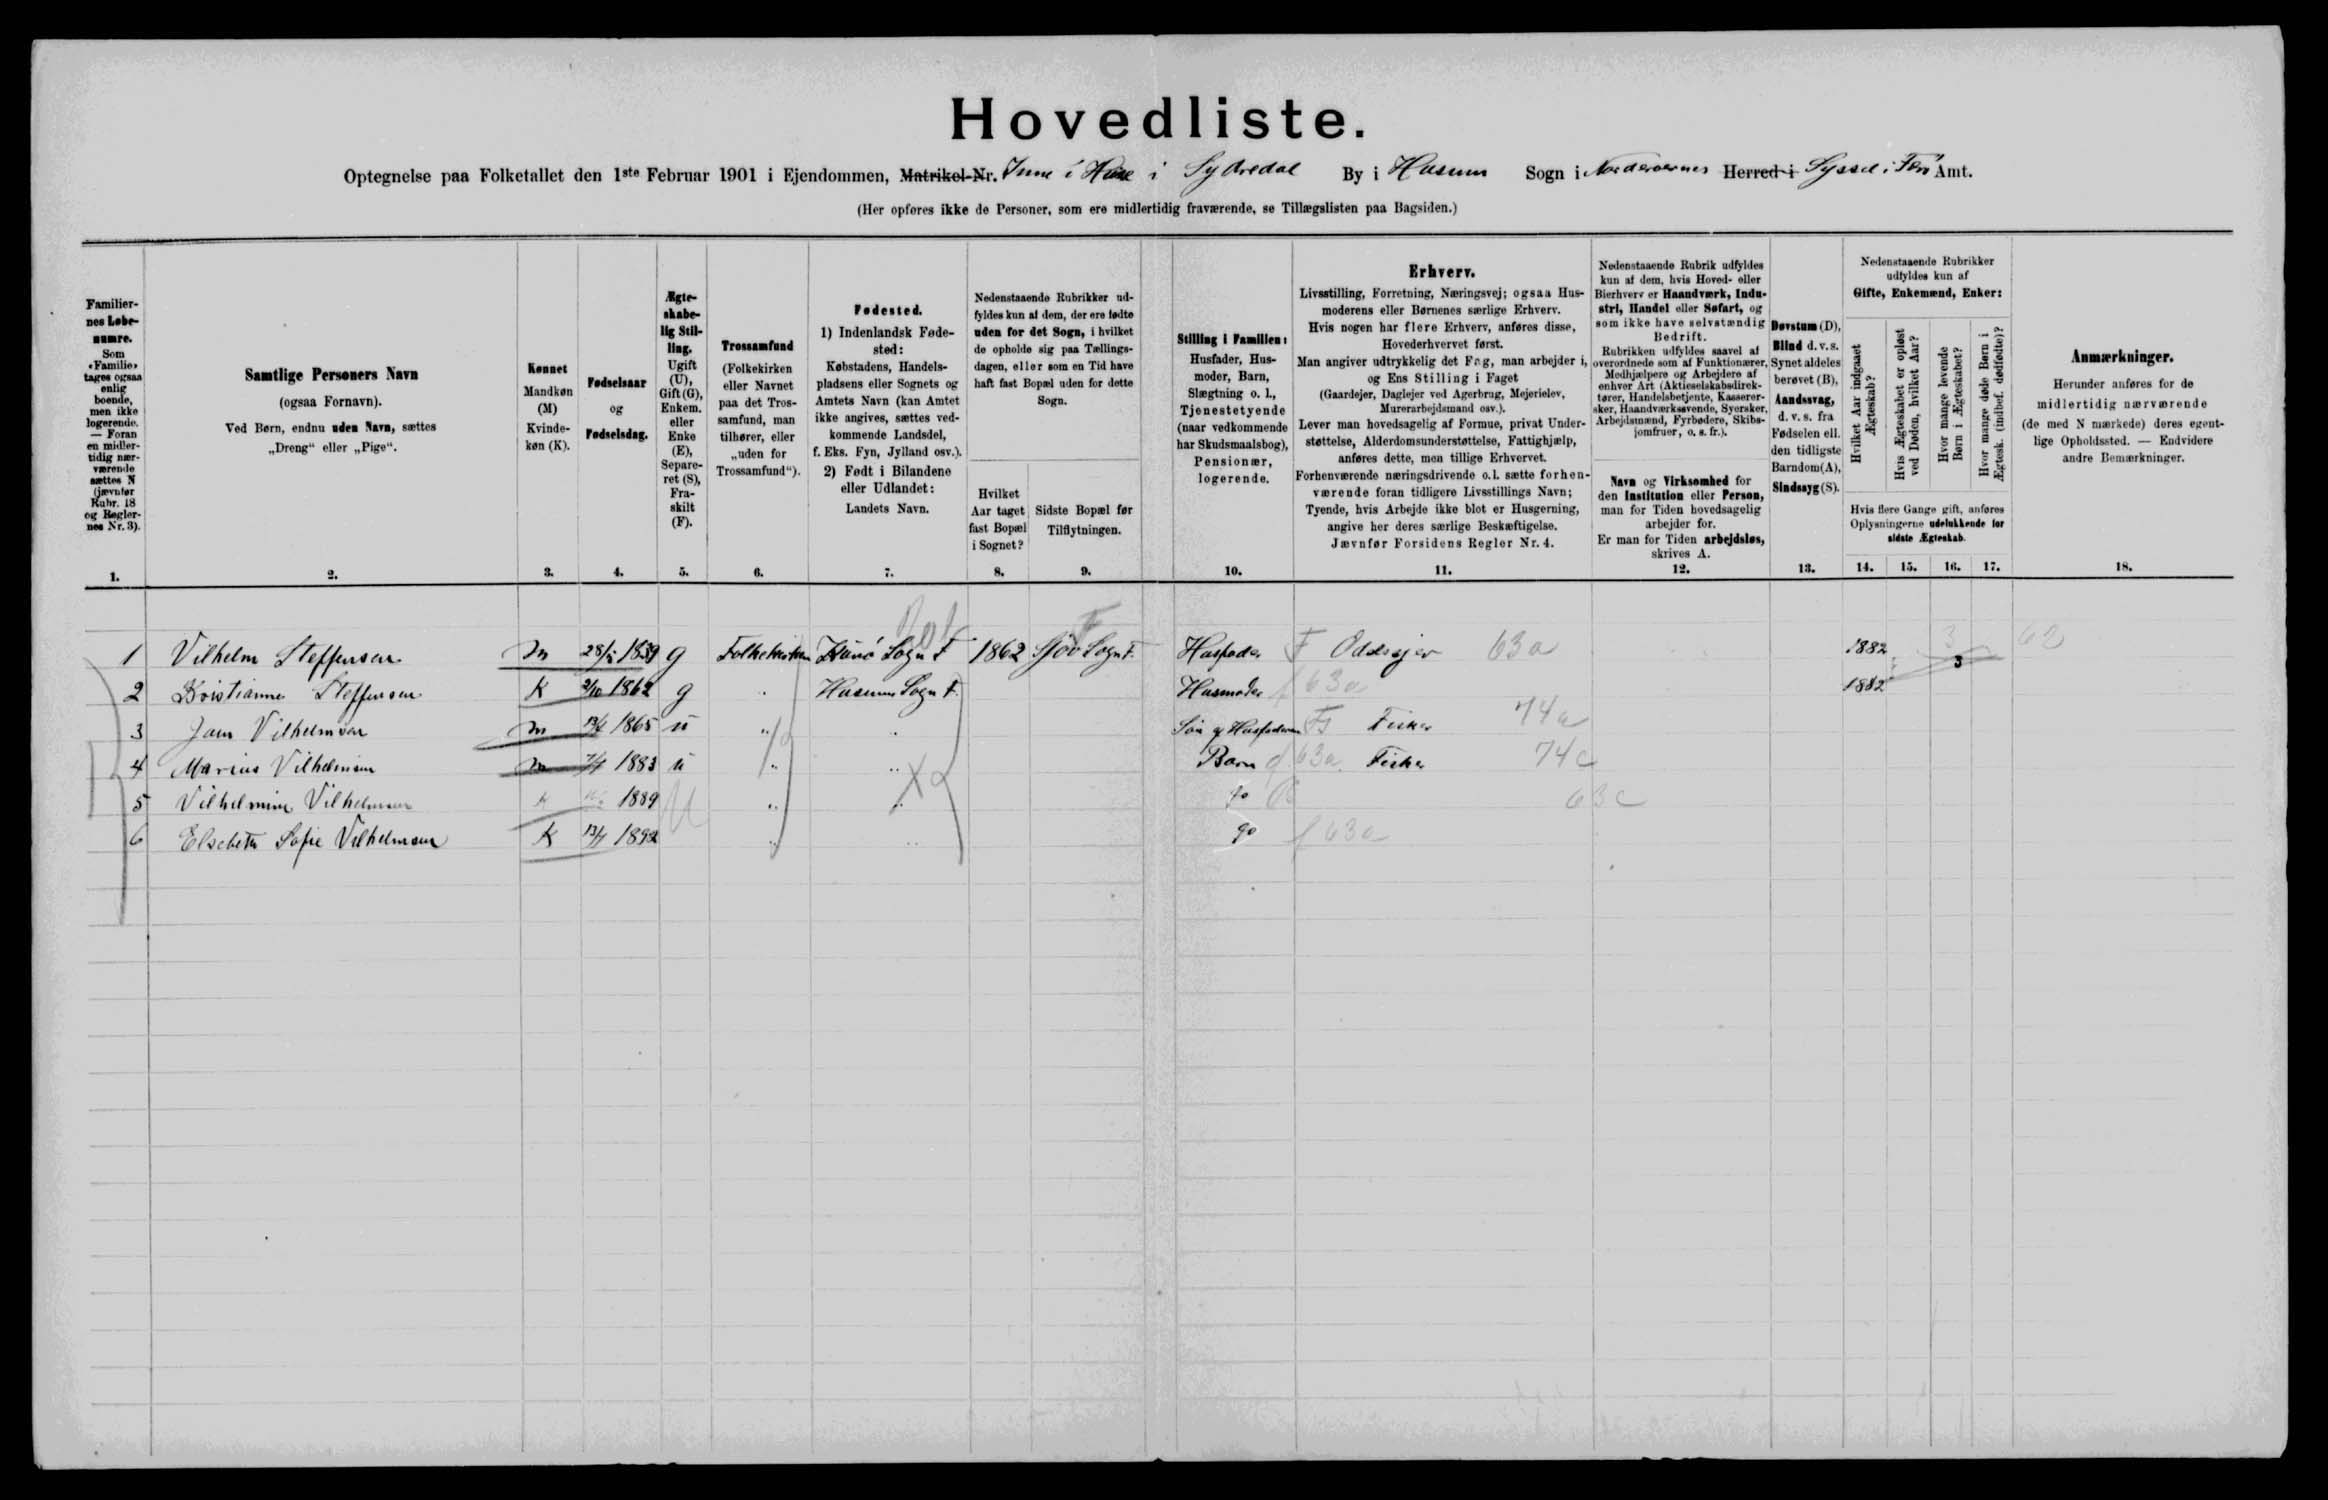 Hovedliste.
Optegnelse paa Folketallet den 1ste Februar 1901 i Ejendommen, Matrikel-Nr. Inne i Huse i Sydredal By i Husum Sogn i Norderoernes Herred i Syssel i Færø Amt.
(Her opføres ikke de Personer, som ere midlertidig fraværende, se Tillægslisten paa Bagsiden.)
Familiernes Løbenumre.
Som «Familie» tages ogsaa enlig boende, men ikke logerende. — Foran en midlertidig nærværende sættes N (jævnfør Rubr. 18 og Reglernes Nr. 3).
Samtlige Personers Navn
(ogsaa Fornavn).
Ved Børn, endnu uden Navn, sættes
„Dreng“ eller „Pige“.
Kønnet
Mandkøn (M)
Kvindekøn (K).
Fødselsaar
og
Fødselsdag.
Ægteskabelig Stilling.
Ugift (U), Gift (G), Enkem. eller Enke (E), Separeret (S), Fraskilt (F).
Trossamfund
(Folkekirken eller Navnet paa det Trossamfund, man tilhører, eller „uden for Trossamfund“).
Fødested.
1) Indenlandsk Fødested:
Købstadens, Handelspladsens eller Sognets og Amtets Navn (kan Amtet ikke angives, sættes vedkommende Landsdel, f. Eks. Fyn, Jylland osv.).
2) Født i Bilandene eller Udlandet:
Landets Navn.
Nedenstaaende Rubrikker udfyldes kun af dem, der ere fødte uden for det Sogn, i hvilket de opholde sig paa Tællingsdagen, eller som en Tid have haft fast Bopæl uden for dette Sogn.
Hvilket Aar taget fast Bopæl i Sognet?
Sidste Bopæl før Tilflytningen.
Stilling i Familien:
Husfader, Husmoder, Barn, Slægtning o. l., Tjenestetyende (naar vedkommende har Skudsmaalsbog), Pensionær, logerende.
Erhverv.
Livsstilling, Forretning, Næringsvej; ogsaa Husmoderens eller Børnenes særlige Erhverv.
Hvis nogen har flere Erhverv, anføres disse, Hovederhvervet først.
Man angiver udtrykkelig det Fag, man arbejder i, og Ens Stilling i Faget
(Gaardejer, Daglejer ved Agerbrug, Mejerielev, Murerarbejdsmand osv.).
Lever man hovedsagelig af Formue, privat Understøttelse, Alderdomsunderstøttelse, Fattighjælp, anføres dette, men tillige Erhvervet.
Forhenværende næringsdrivende o. l. sætte forhenværende foran tidligere Livsstillings Navn;
Tyende, hvis Arbejde ikke blot er Husgerning, angive her deres særlige Beskæftigelse.
Jævnfør Forsidens Regler Nr. 4.
Nedenstaaende Rubrik udfyldes kun af dem, hvis Hoved- eller Bierhverv er Haandværk, Industri, Handel eller Søfart, og som ikke have selvstændig Bedrift.
Rubrikken udfyldes saavel af overordnede som af Funktionærer, Medhjælpere og Arbejdere af enhver Art (Aktieselskabsdirektører, Handelsbetjente, Kasserersker, Haandværkssvende, Syersker, Arbejdsmænd, Fyrbødere, Skibsjomfruer, o. s. fr.).
Navn og Virksomhed for den Institution eller Person, man for Tiden hovedsagelig arbejder for.
Er man for Tiden arbejdsløs, skrives A.
Døvstum (D), Blind d. v. s. Synet aldeles berøvet (B), Aandssvag, d. v. s. fra Fødselen ell. den tidligste Barndom (A), Sindssyg (S).
Nedenstaaende Rubrikker udfyldes kun af
Gifte, Enkemænd, Enker:
Hvilket Aar indgaaet Ægteskab?
Hvis Ægteskabet er opløst ved Døden, hvilket Aar?
Hvor mange levende Børn i Ægteskabet?
Hvor mange døde Børn i Ægtesk. (indbef. dødfødte)?
Hvis flere Gange gift, anføres Oplysningerne udelukkende for sidste Ægteskab.
Anmærkninger.
Herunder anføres for de midlertidig nærværende (de med N mærkede) deres egentlige Opholdssted. — Endvidere andre Bemærkninger.
1. 2. 3. 4. 5. 6. 7. 8. 9. 10. 11. 12. 13. 14. 15. 16. 17. 18.
1 Vilhelm Steffensen M 1839 g Folkekirken Kunö Sogn F 1862 Sjov Sogn F. Husfader F Oddesejer 63a 1882 3 3 62
2 Kristianne Steffensen K 2/10 1862 g „ Husum Sogn F. Husmoder f 63a 1882
3 Joen Vilhelmsen M 1865 u „ „ Sön af Husfaderen Fisker 74a
4 Marius Vilhelmsen M 1883 u „ „ Barn 63a Fisker 74c
5 Vilhelmine Vilhelmsen K 1889 U „ „ do 63c
6 Elsebeth Sofie Vilhelmsen K 1892 „ „ do f 63a